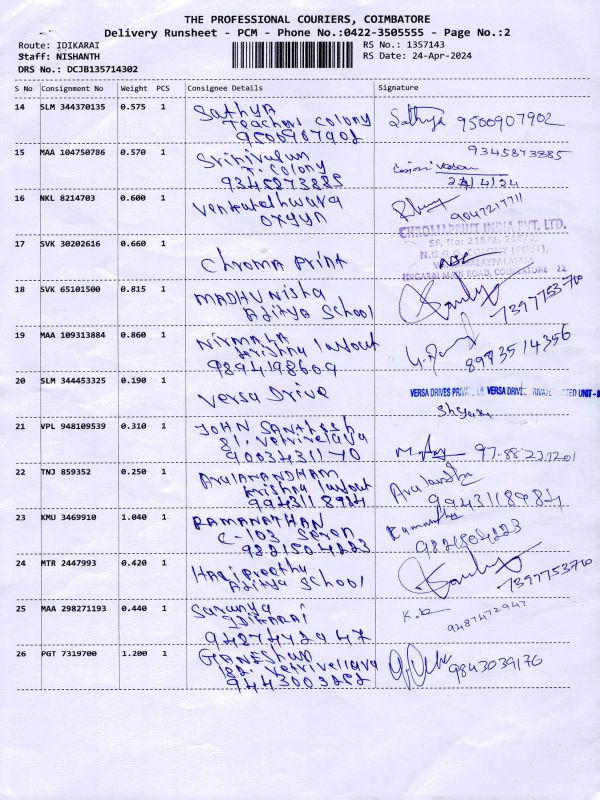 THE PROFESSIONAL COURIERS, COIMBATORE
Delivery Runsheet - PCM - Phone No.:0422-3505555 - Page No.:2
Route: IDIKARAI
RS No.: 1357143
Staff: NISHANTH
RS Date: 24-Apr-2024
DRS No.: DCJB135714302
S No Consignment No Weight PCS Consignee Details Signature
14 SLM 344370135 0.575 1 Sathya
Teachers colony
9500907902
Sathya 9500907902
15 MAA 104750786 0.570 1 Srinivasan
T. Colony
9345873885
9345873885
24/4/24
16 NKL 8214703 0.600 1 Venkateshwara
oxygn
9047217711
17 SVK 30202616 0.660 1 Chroma Print
CHROMAPRINT INDIA PVT. LTD.
IDIGARAI MAIN ROAD, COIMBATORE 22
18 SVK 65101500 0.815 1 MADHU Nisha
Aditya School
7397753700
19 MAA 109313884 0.860 1 NIRMALA
krishna layout
9894198609
8973514356
20 SLM 344453325 0.190 1 Versa Drive
VERSA DRIVES
21 VPL 948109539 0.310 1 JOHN SANTHOSH
81. Vetrivelava
9003431170
22 TNJ 859352 0.250 1 ARULANANDHAM
krishna layout
9943118984
9943118984
23 KMU 3469910 1.040 1 RAMANATHAN
C-103 Seren
9821504223
9821504223
24 MTR 2447993 0.420 1 Haripreethy
Aditya School
7397753700
25 MAA 298271193 0.440 1 Saranya
IDIKARAI
9487472947
K.
9487472947
26 PGT 7319700 1.200 1 GANESHAN
182. Vetrivelava
9443003252
9843039176